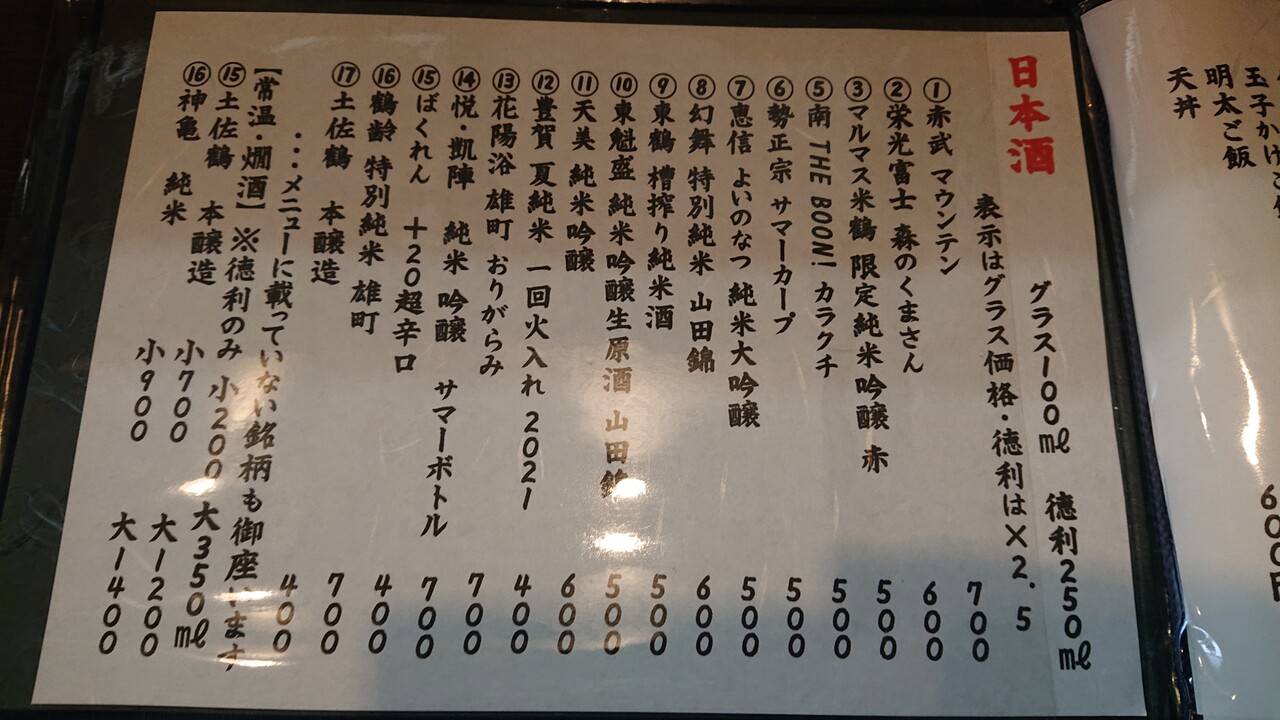 日本酒
グラス100㎖ 徳利250㎖
表示はグラス価格・徳利は×2.5
①赤武 マウンテン 700
②栄光富士 森のくまさん 600
③マルマス米鶴 限定純米吟醸 赤 500
⑤南 THE BOON! カラクチ 500
⑥勢正宗 サマーカープ 500
⑦恵信 よいのなつ 純米大吟醸 500
⑧幻舞 特別純米 山田錦 600
⑨東鶴 槽搾り純米酒 500
⑩東魁盛 純米吟醸生原酒 山田錦 500
⑪天美 純米吟醸 600
⑫豊賀 夏純米 一回火入れ 2021 400
⑬花陽浴 雄町 おりがらみ 700
⑭悦・凱陣 純米 吟醸 サマーボトル 700
⑮ばくれん +20超辛口 400
⑯鶴齢 特別純米 雄町 700
⑰土佐鶴 本醸造 400
・・・メニューに載っていない銘柄も御座います
【常温・燗酒】※徳利のみ 小200 大350㎖
⑮土佐鶴 本醸造 小700 大1200
⑯神亀 純米 小900 大1400
玉子かけご飯
明太ご飯
天丼
600円